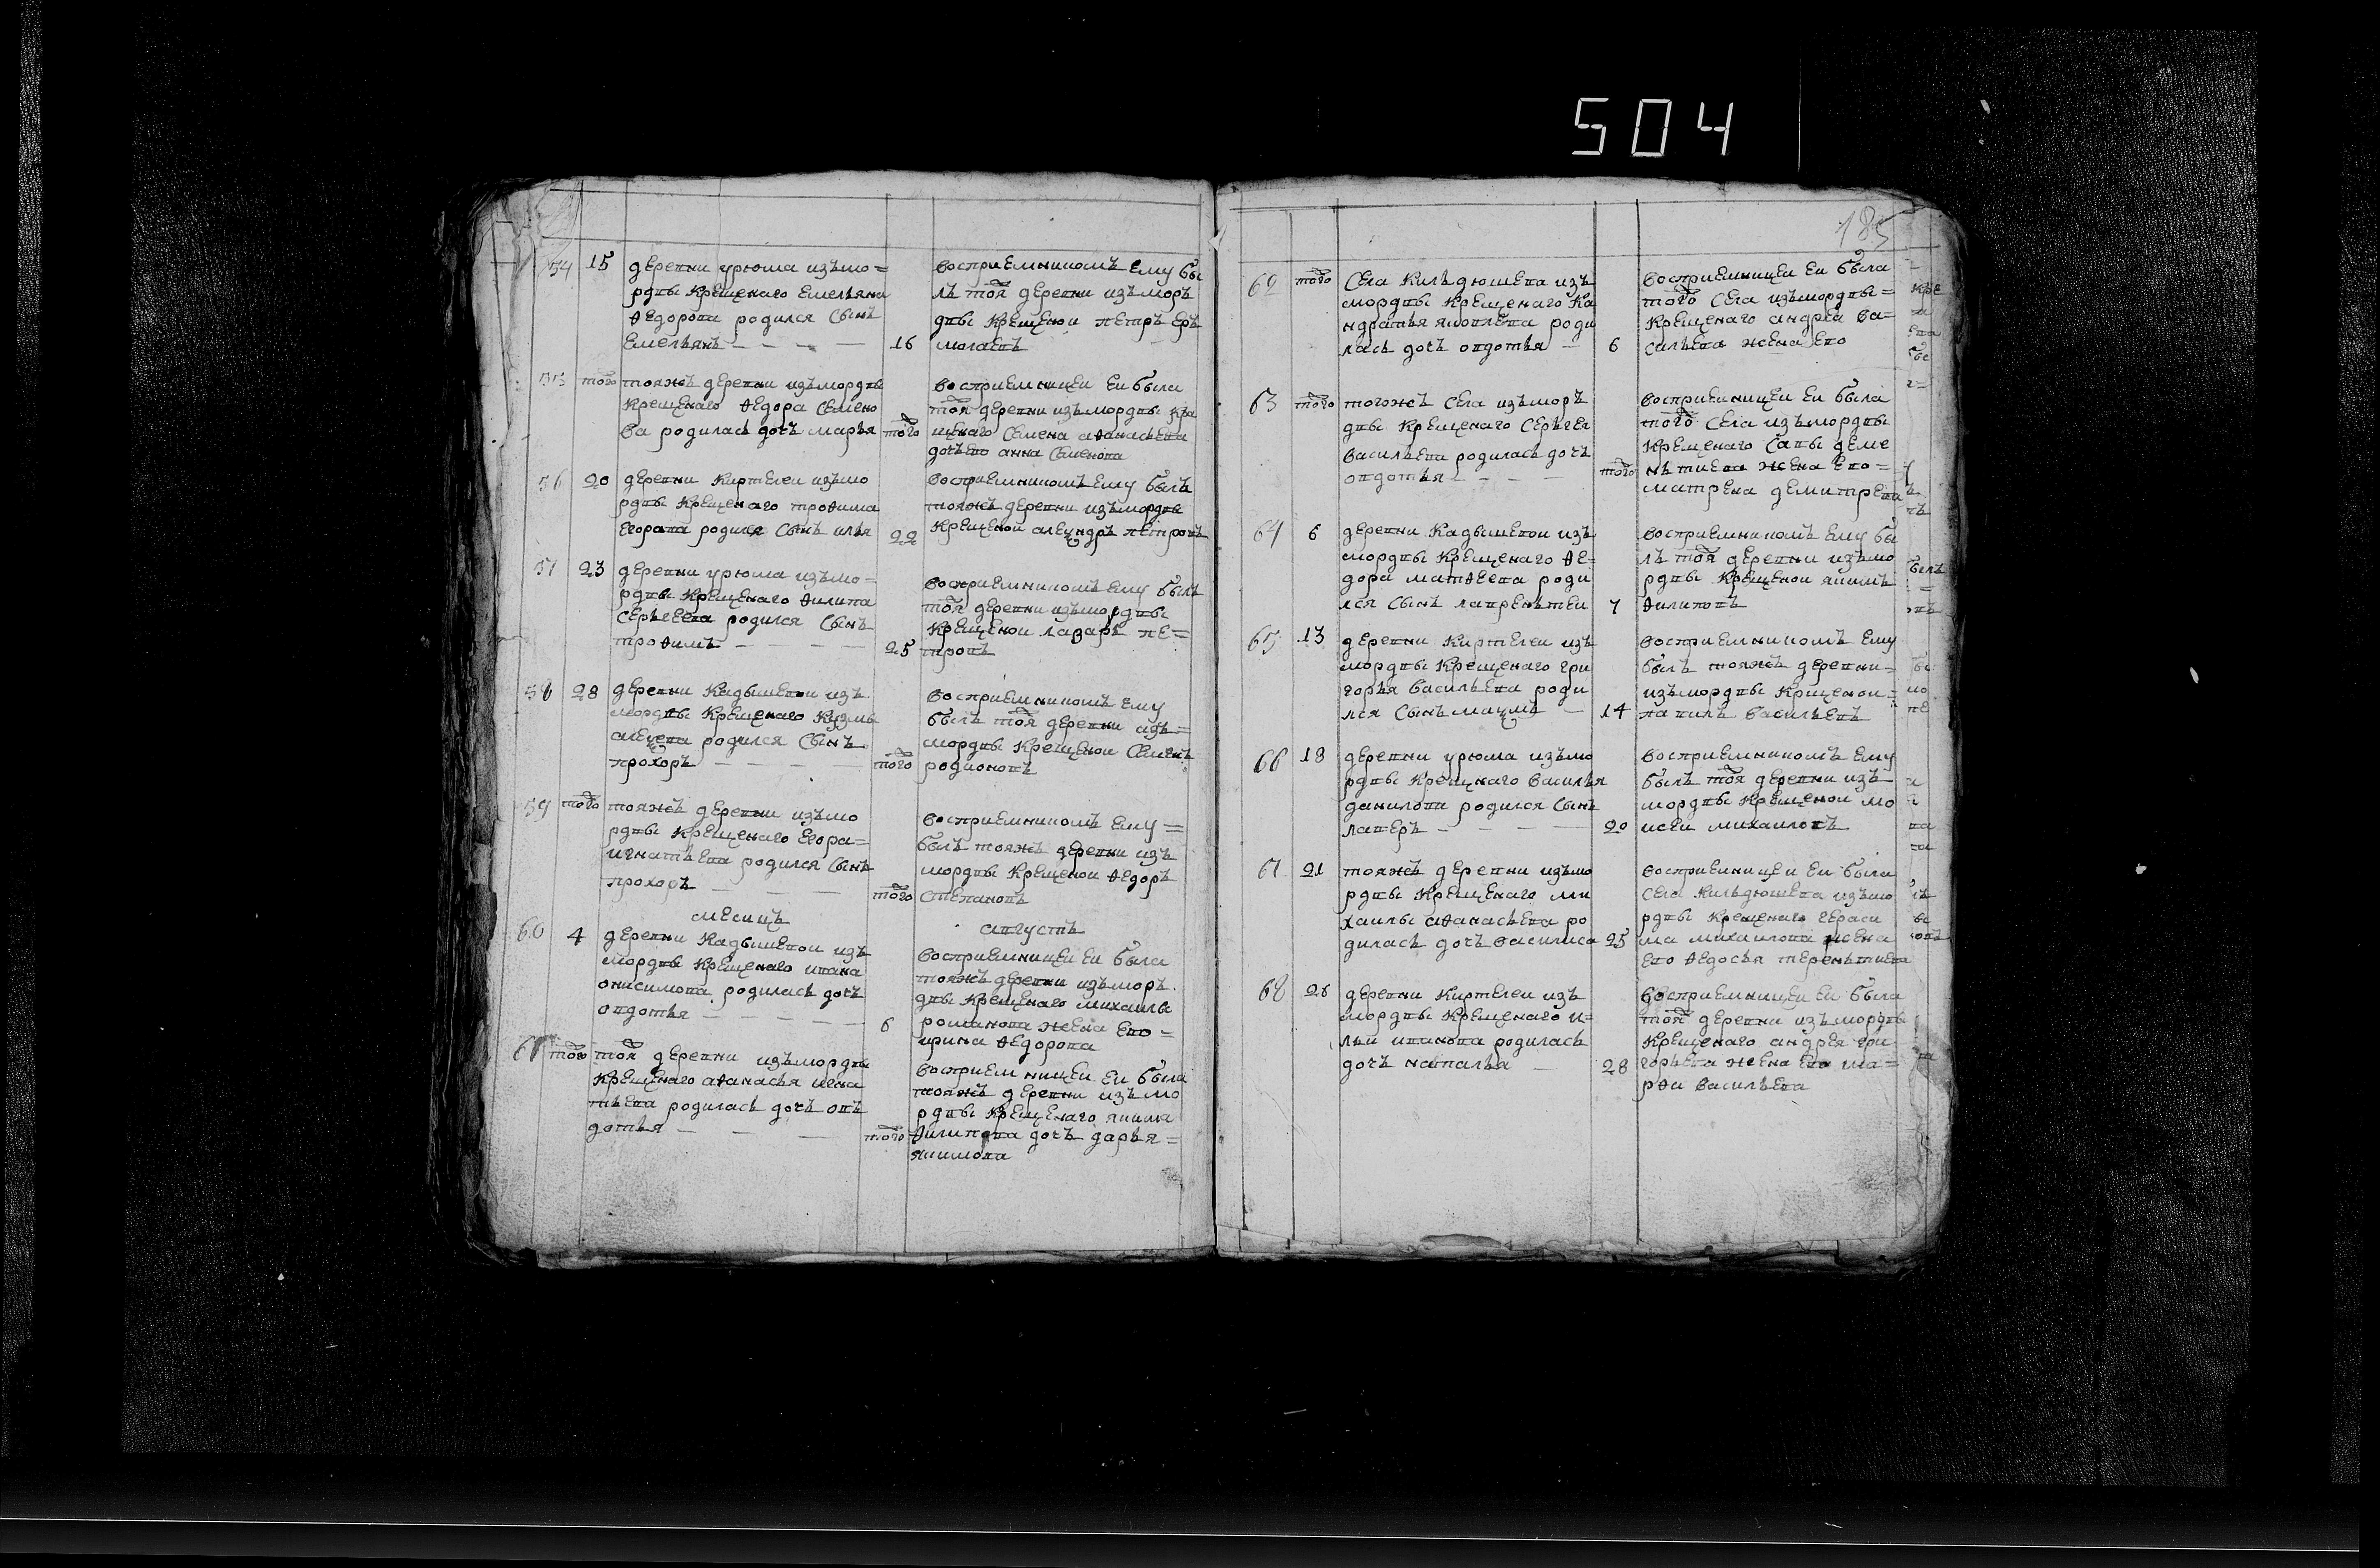 504
54 15 деревни урюма изъ мо=
рдвы крещенаго емельяна
ѳедорова родился сынъ
емельянъ 16
восприемникомъ ему бы
лъ тоя деревни изъ моръ
двы крещенои петръ еръ
молаевъ
55 того тояжъ деревни изъ мордвы
крещенаго ѳедора семено
ва родилась дочь марья того
восприемницеи еи была
тоя деревни изъ мордвы кра
щенаго семена аѳанасьева
дочь ево анна семенова
56 20 деревни киртелеи изъ мо
рдвы крещенаго троѳима
егорава родился сынъ илья 22
восприемникомъ ему былъ
тояжъ деревни изъ мордвы
крещеной алеѯандръ петровъ
57 23 деревни урюма изъ мо=
рдвы крещенаго ѳилипа
серьгеева родился сынъ
троѳимъ 25
восприемникомъ ему былъ
тоя деревни изъ мордвы
крещенои лазарь пе=
тровъ
58 28 деревни кадышевои изъ
мордвы крещенаго кузмы
алеѯева родился сынъ
прохоръ того
восприемникомъ ему
былъ тоя деревни изъ=
мордвы крещенои семенъ
родионовъ
59 того тояжъ деревни изъ мо
рдвы крещенаго егора=
игнатьева родился сынъ
прохоръ того
восприемникомъ ему=
былъ тояжъ деревни изъ
мордвы крещенои ѳедоръ
степановъ
месицъ августъ
60 4 деревни кадышевои изъ
мордвы крещенаго ивана
онисимова родилась дочь
овдотья 6
восприемницеи еи была
тояжъ деревни изъ моръ
двы крещенаго михаилы
романова жена ево=
ирина ѳедорова
61 того тоя деревни изъ мордвы
крещенаго аѳанасья игна
тьева родилась дочь овъ
дотья того
восприемницеи еи была
тояжъ деревни изъ мо
рдвы крещенаго якима
ѳилипова дочь дарья=
якимова
185
62 того села кильдюшева изъ
мордвы крещенаго ка
ндратья яковлева роди
лась дочь овдотья 6
восприемницеи еи была
того села изъ мордвы=
крещенаго андрея ва=
сильева жена ево
63 того тогожъ села изъ моръ
двы крещенаго серьгея
васильева родилась дочь
овдотья того
восприемницеи еи была
того села изъ мордвы
крещенаго савы деме
ньтиева жена ево=
матрена демитрева
64 6 деревни кадышевои изъ
мордвы крещенаго ѳе=
дора матѳеева роди
лся сынъ лаврентеи 7
восприемникомъ ему бы
лъ тоя деревни изъ мо
рдвы крещенои якимъ
ѳилиповъ
65 13 деревни киртелеи изъ
мордвы крещенаго гри
горья васильева роди
лся сынъ маѯимъ 14
восприемникомъ ему
былъ тояжъ деревни=
изъ мордвы крищенои=
павилъ васильевъ
66 18 деревни урюма изъ мо
рдвы крещенаго василья
данилова родился сынъ
лаверъ 20
восприемникомъ ему
былъ тоя деревни изъ
мордвы крещенои мо
исеи михаиловъ
67 21 тояжъ деревни изъ мо
рдвы крещенаго ми
хаилы аѳанасьева ро
дилась дочь василиса 25
восприемницеи еи была
села кильдюшева изъ мо
рдвы крещенаго гераси
ма михаилова жена
ево ѳедосья терентиева
68 26 деревни киртелеи изъ
мордвы крещенаго и=
льи иванова родилась
дочь наталья 28
восприемницеи еи была
тоя деревни изъ мордвы
крещенаго андрея гри
горьева жена ево ма=
рѳа васильева